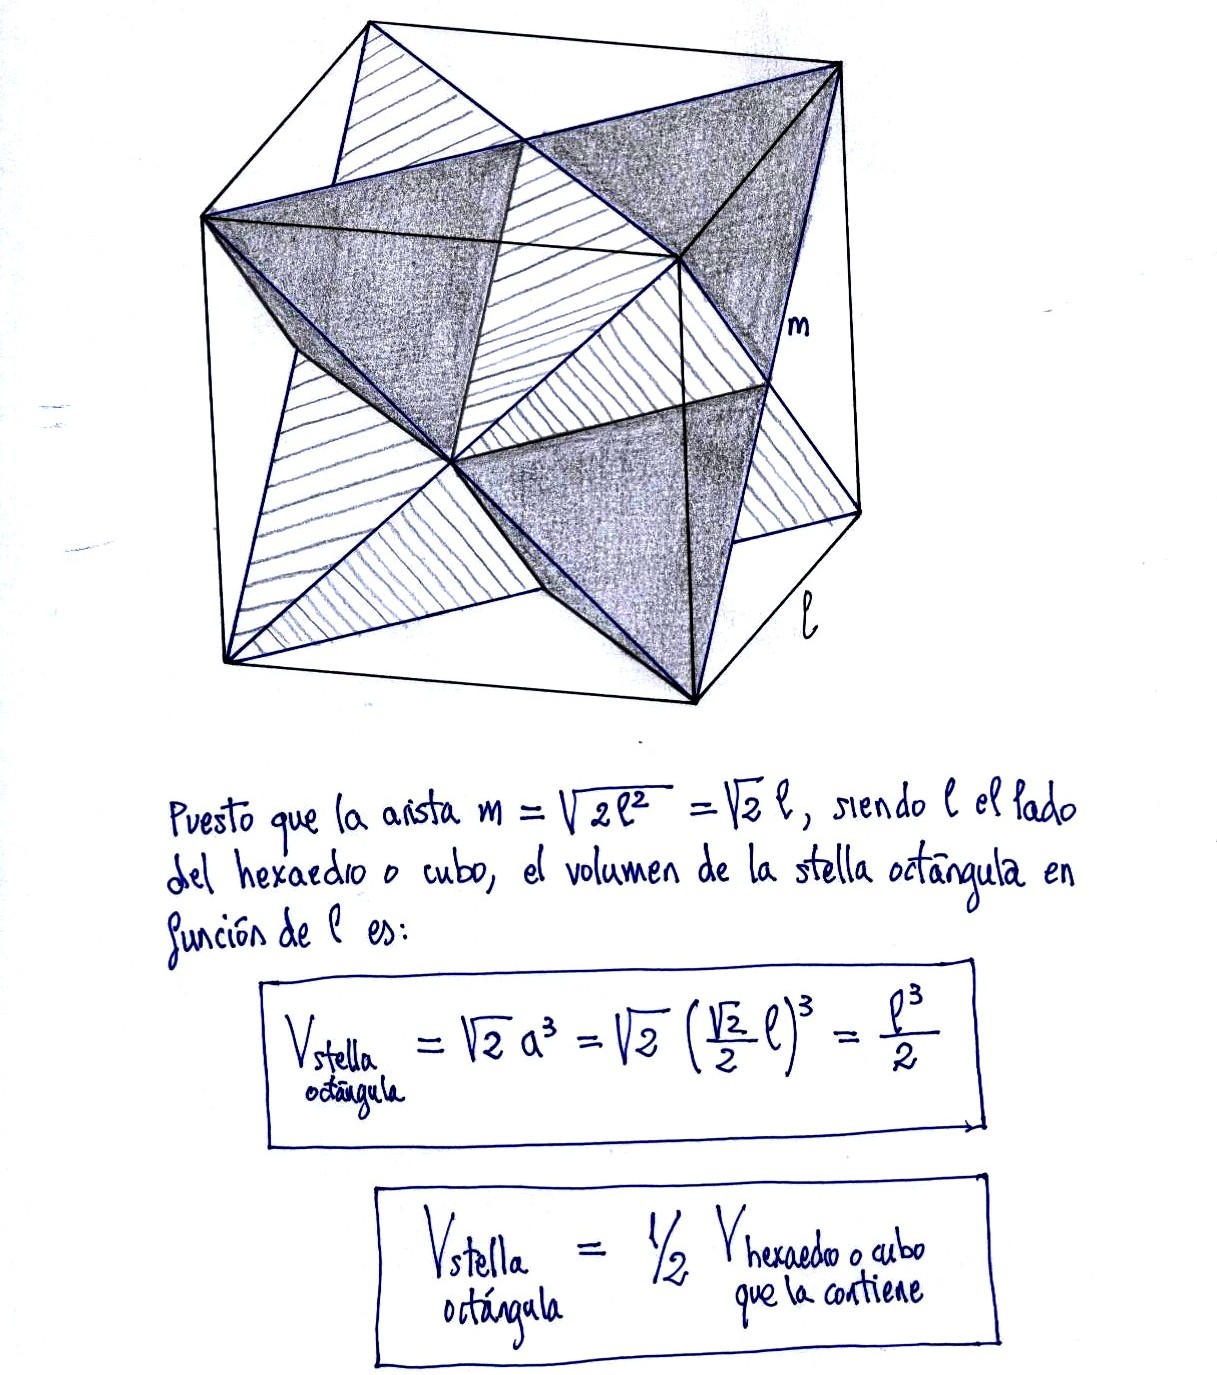 m
l
Puesto que la arista m = √2l² = √2 l, siendo l el lado
del hexaedro o cubo, el volumen de la stella octángula en
función de l es:
V stella octángula = √2 a³ = √2 (√2/2 l)³ = l³/2
V stella octángula = 1/2 V hexaedro o cubo que la contiene